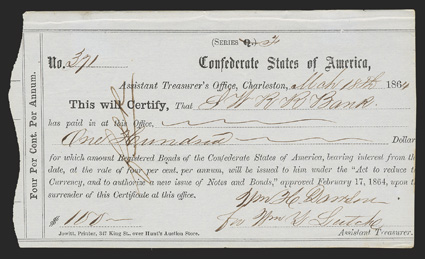 (SERIES
No. 371 Confederate States of America,
Assistant Treasurer's Office, Charleston, March 18th 1864
This will Certify, That S W R R Bank
has paid in at this Office,
One Hundred Dollar
for which amount Registered Bonds of the Confederate States of America, bearing interest from th
date, at the rate of four per cent. per annum, will be issued to him under the "Act to reduce t
Currency, and to authorize a new issue of Notes and Bonds," approved February 17, 1864, upon
surrender of this Certificate at this office.
Wm H
$ 100 for Wm Y Leitch
Assistant Treasurer.
Jowitt, Printer, 347 King St., over Hunt's Auction Store.
Four Per Cent. Per Annum.